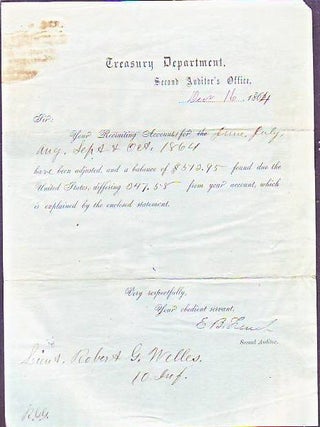 Treasury Department,
Second Auditor's Office,
16, 1864
Sir:
Your Recruiting Accounts for the June, July,
Aug. Sept & Oct. 1864
have been adjusted, and a balance of $512.95 found due the
United States, differing $47.58 from your account, which
is explained by the enclosed statement.
Very respectfully,
Your obedient servant,
E. B. French
Second Auditor.
Lieut. Robert G. Welles.
10 Inf.